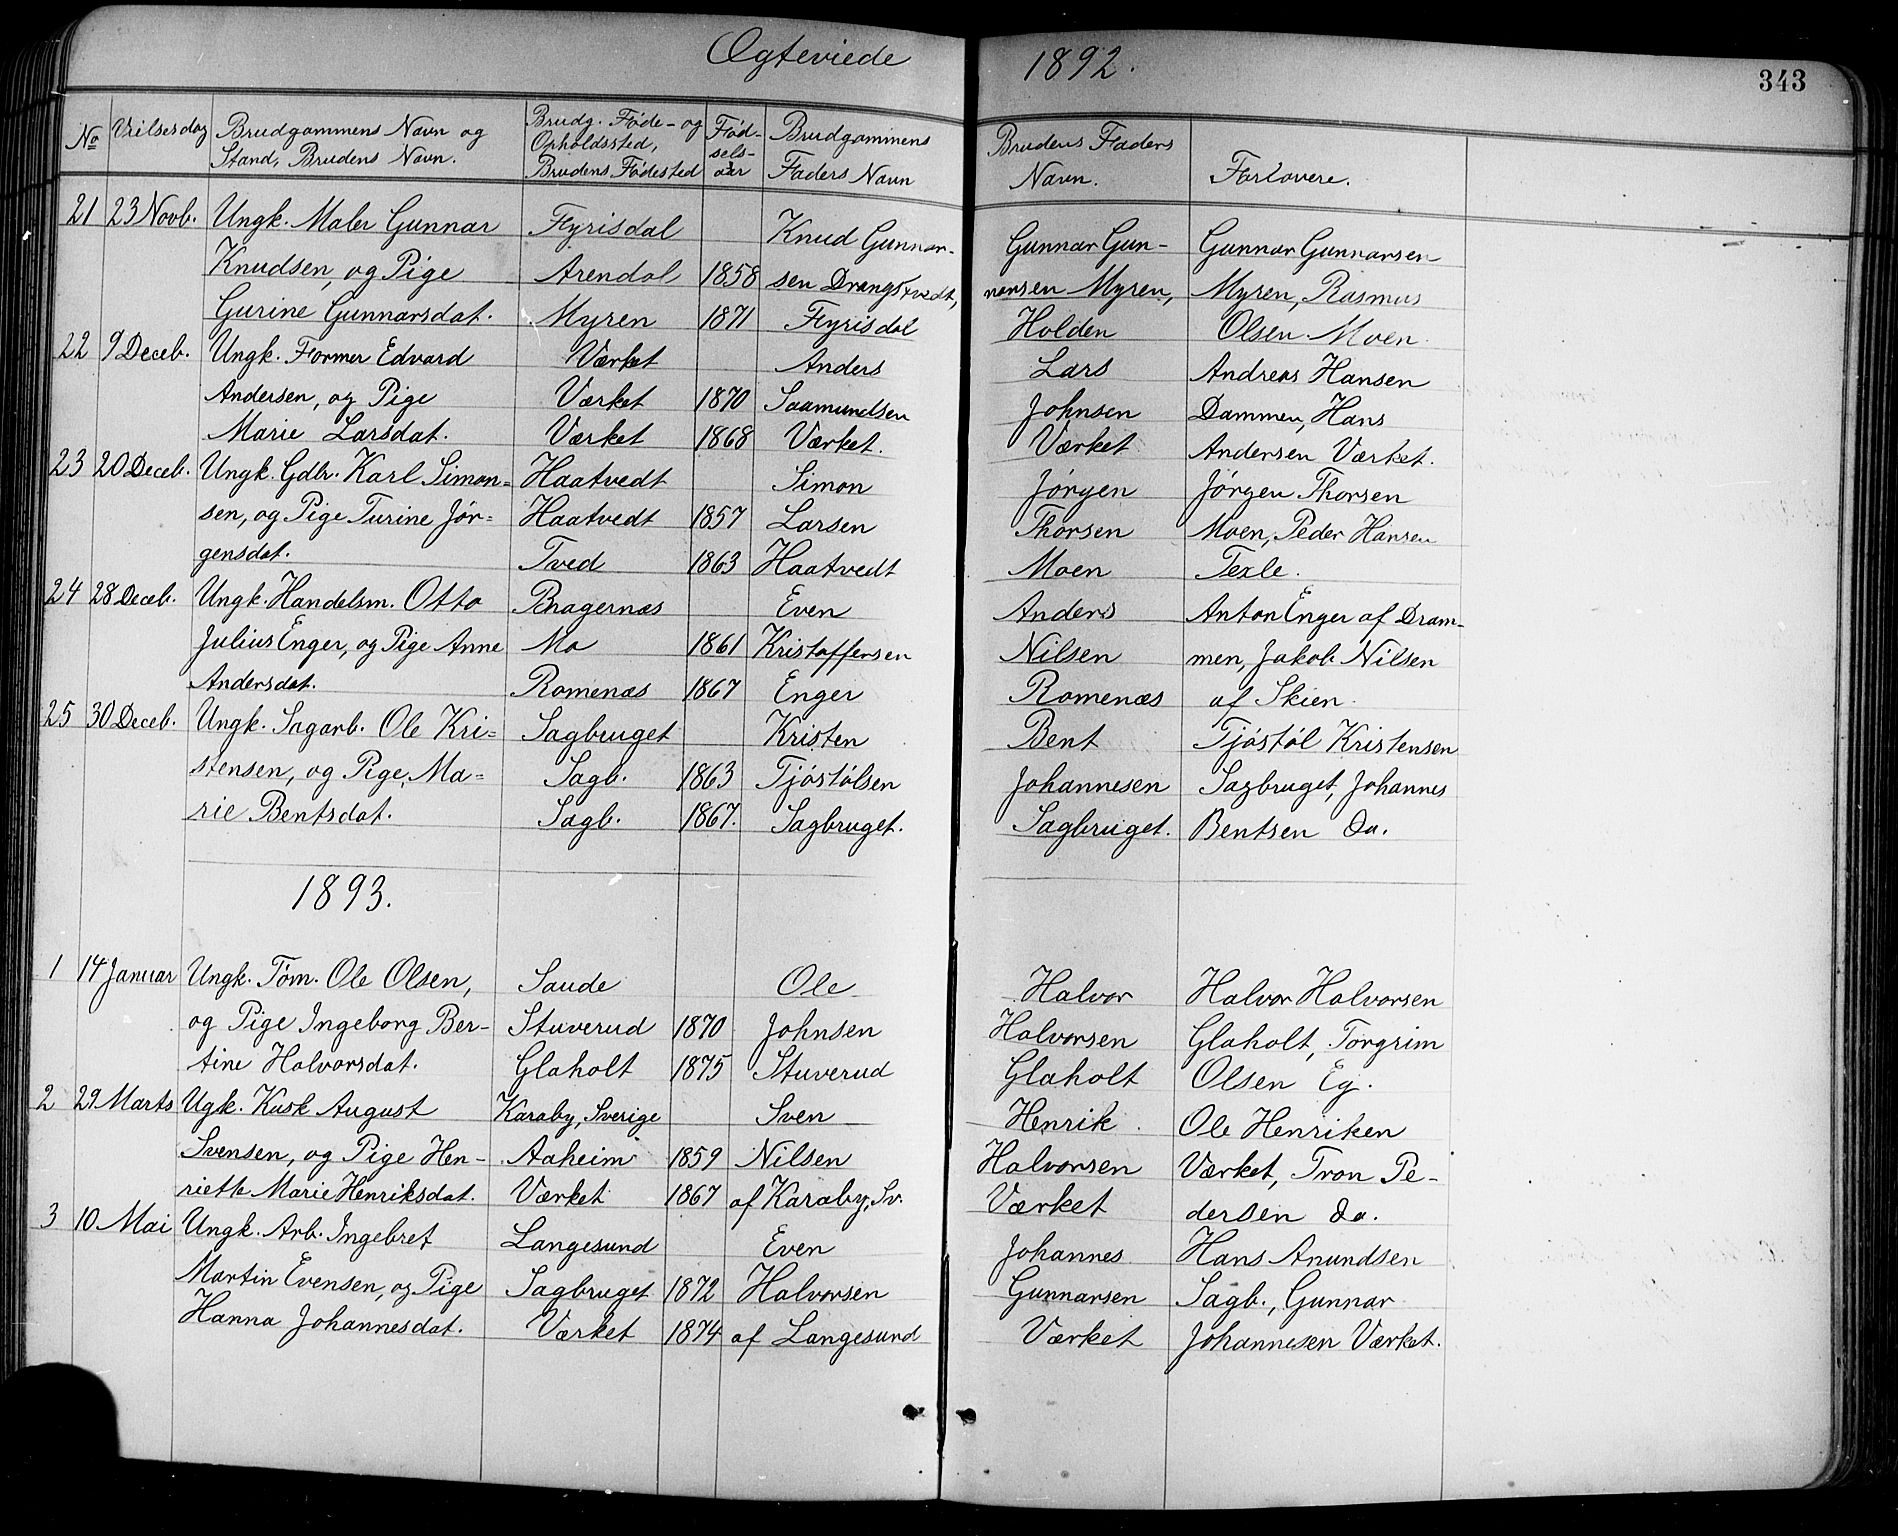 Ægteviede 1892.
343
No | Vielsesdag | Brudgommens Navn og | Brudg. Føde- og | Fød- | Brudgommens | Brudens Faders | Forlovere.
Stand, Brudens Navn. | Opholdssted, | sels- | Faders Navn | Navn.
Brudens Fødested | aar
21 | 23 Novb. | Ungk. Maler Gunnar | Fyrisdal | | Knud Gunnar- | Gunnar Gun- | Gunnar Gunnarsen
Knudsen, og Pige | Arendal | 1858 | sen Drangstvedt, | narsen Myren, | Myren, Rasmus
Gurine Gunnarsdat. | Myren | 1871 | Fyrisdal | Holden | Olsen Moen
22 | 9 Deceb. | Ungk. Former Edvard | Værket | | Anders | Lars | Andreas Hansen
Andersen, og Pige | Værket | 1870 | Saamundsen | Johnsen | Dammen, Hans
Marie Larsdat. | Værket | 1868 | Værket. | Værket | Andersen Værket.
23 | 20 Deceb. | Ungk. Gdbr. Karl Simon= | Haatvedt | | Simon | Jørgen | Jørgen Thorsen
sen, og Pige Turine Jør= | Haatvedt | 1857 | Larsen | Thorsen | Moen, Peder Hansen
gensdat. | Tved | 1863 | Haatvedt | Moen | Texle.
24 | 28 Deceb. | Ungk. Handelsm. Otto | Bragernæs | | Even | Anders | Anton Enger af Dram-
Julius Enger, og Pige Anne | Mo | 1861 | Kristoffersen | Nilsen | men, Jakob Nilsen
Andersdat. | Romenæs | 1867 | Enger | Romenæs | af Skien.
25 | 30 Deceb. | Ungk. Sagarb. Ole Kri= | Sagbruget | | Kristen | Bent | Tjøstøl Kristensen
stensen, og Pige Ma= | Sagb. | 1863 | Tjøstølsen | Johannesen | Sagbruget, Johannes
rie Bentsdat. | Sagb. | 1867. | Sagbruget. | Sagbruget. | Bentsen do.
1893.
1 | 14 Januar | Ungk. Tøm. Ole Olsen, | Saude | | Ole | Halvor | Halvor Halvorsen
og Pige Ingeborg Ber- | Stuverud | 1870 | Johnsen | Halvorsen | Glaholt, Torgrim
tine Halvorsdat. | Glaholt | 1875 | Stuverud | Glaholt | Olsen Eg.
2 | 29 Marts | Ugk. Kusk August | Karaby, Sverige | | Sven | Henrik | Ole Henriken
Svensen, og Pige Hen- | Aaheim | 1859 | Nilsen | Halvorsen | Værket, Tron Pe-
riette Marie Henriksdat. | Værket | 1867 | af Karaby, Sv. | Værket | dersen do.
3 | 10 Mai | Ungk. Arb. Ingebret | Langesund | | Even | Johannes | Hans Anundsen
Martin Evensen, og Pige | Sagbruget | 1872 | Halvorsen | Gunnarsen | Sagb., Gunnar
Hanna Johannesdat. | Værket | 1874 | af Langesund | Værket | Johannesen Værket.